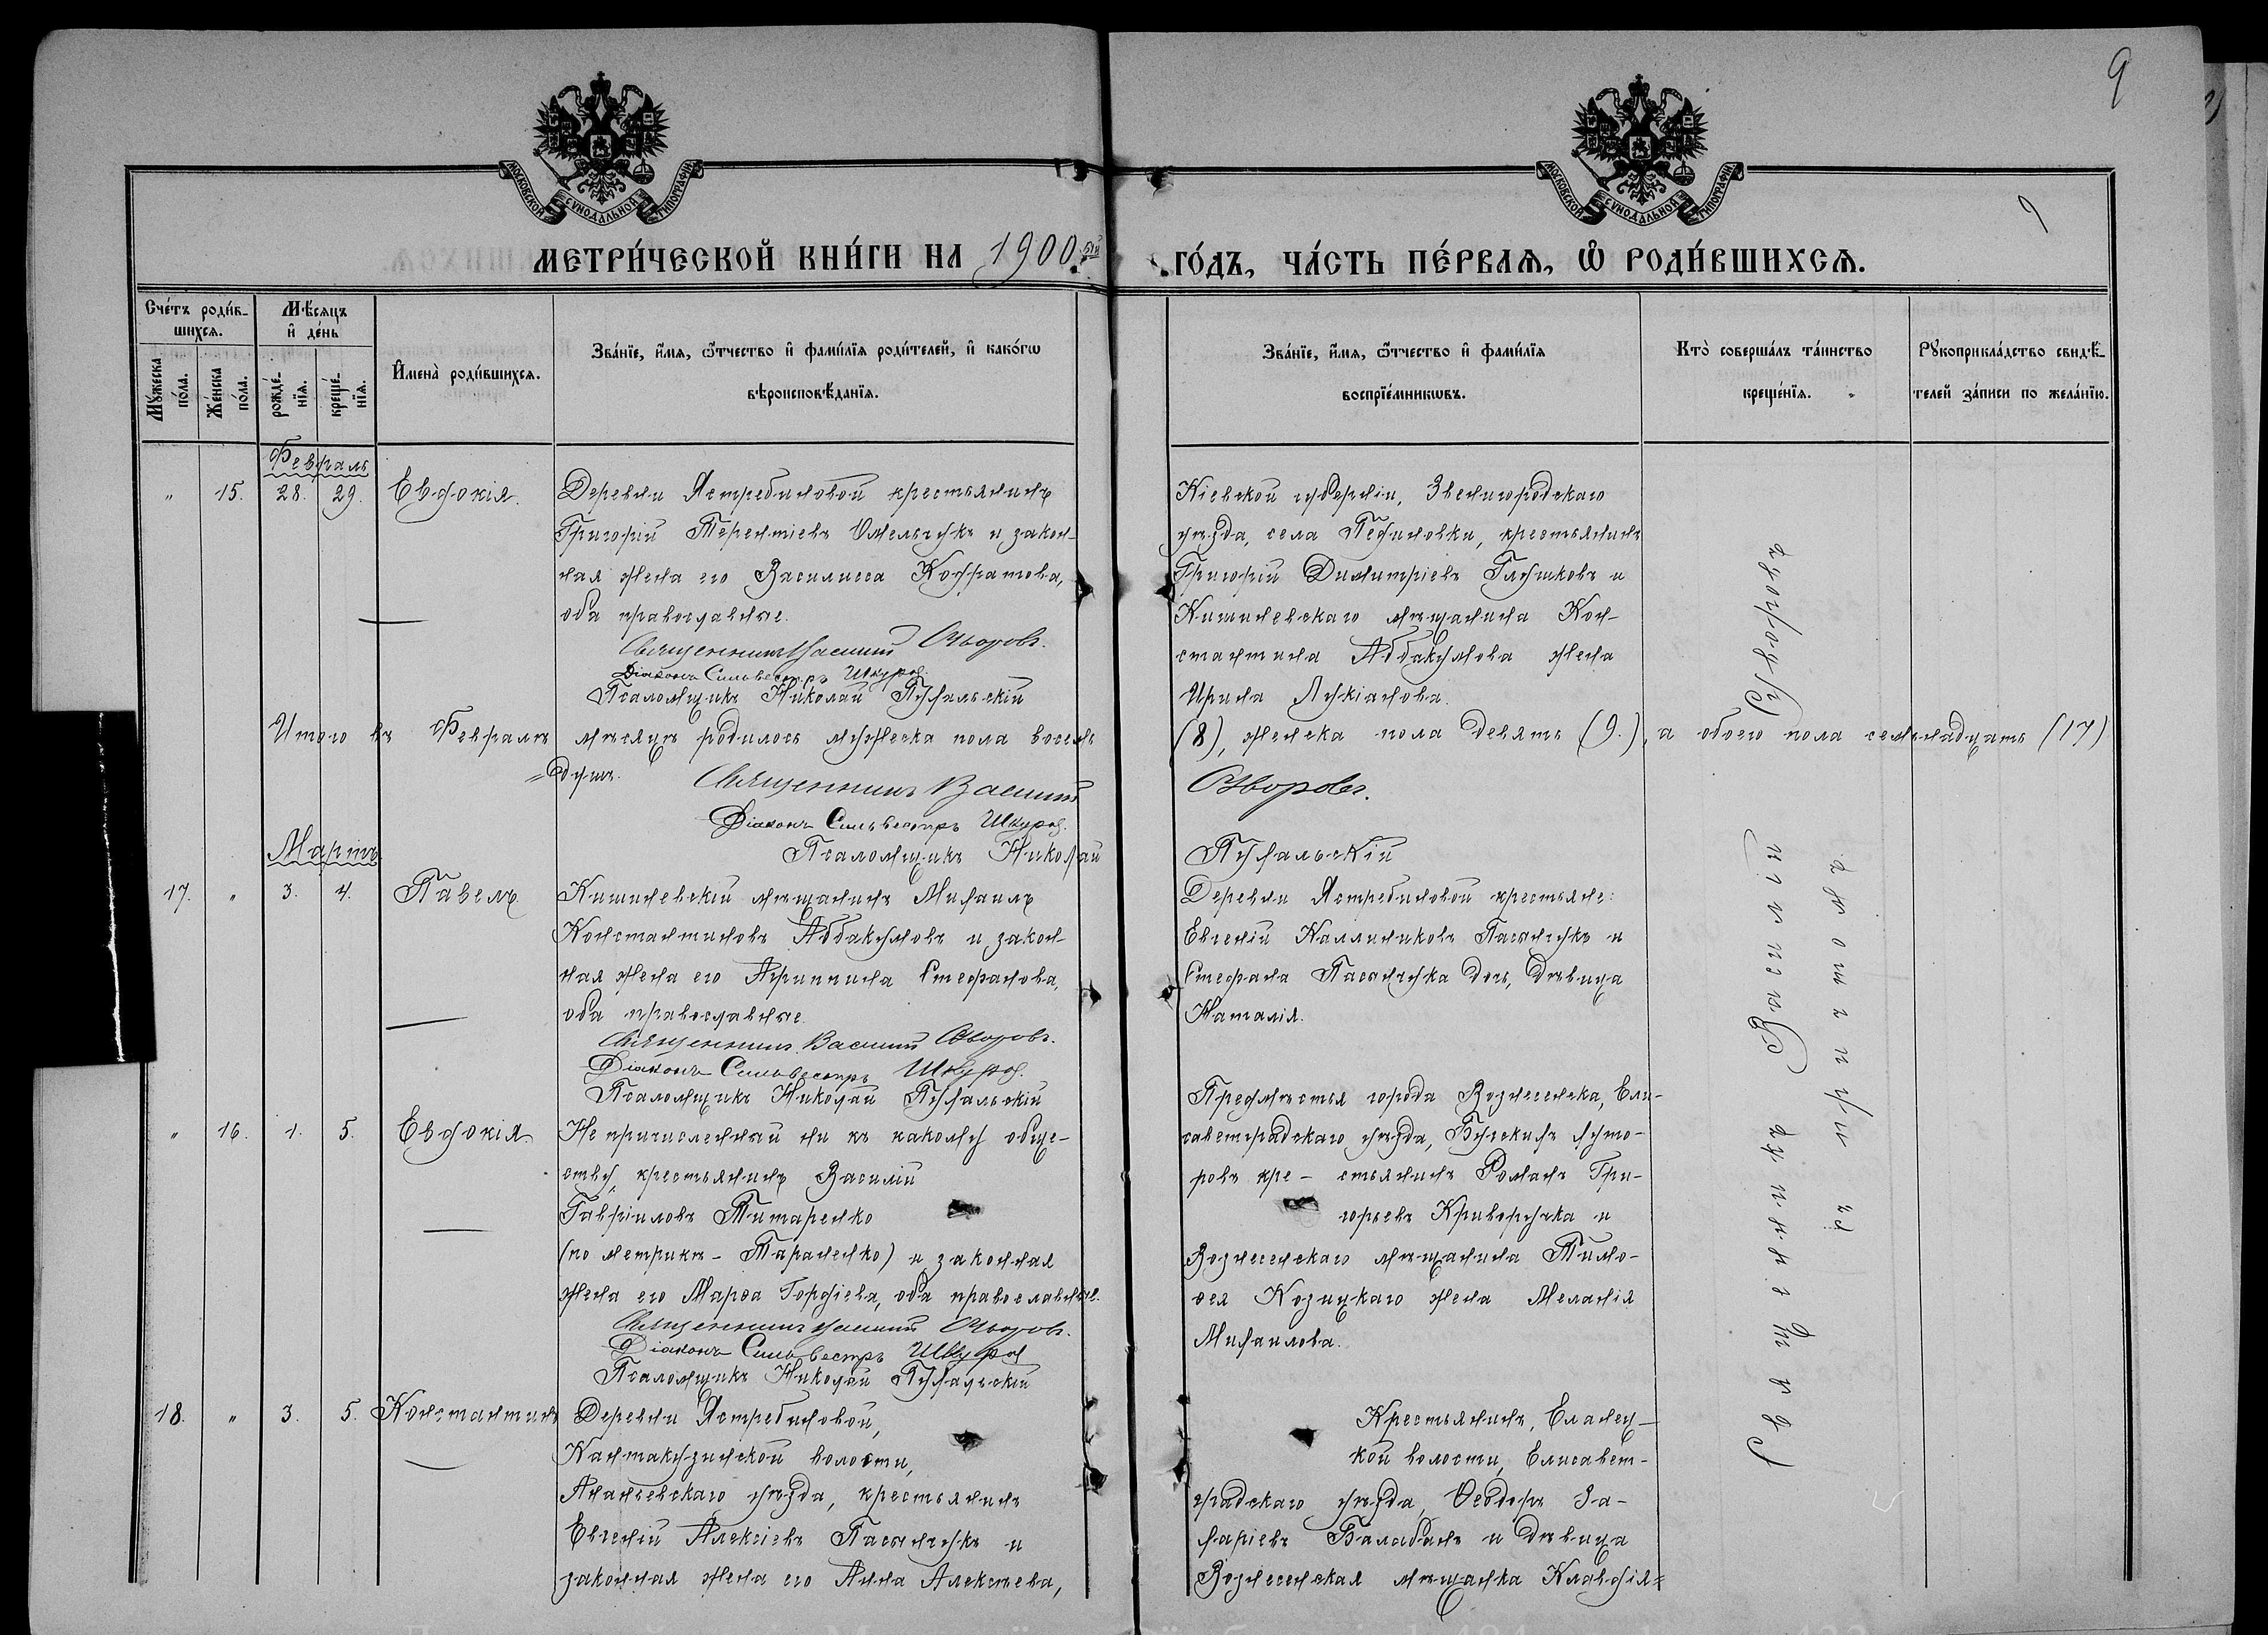 9
МОСКОВСКОЙ СѴНОДАЛЬНОЙ ТИПОГРАФІИ
МОСКОВСКОЙ СѴНОДАЛЬНОЙ ТИПОГРАФІИ
МЕТРИ́ЧЕСКОЙ КНИ́ГИ НА 1900 ый ГО́ДЪ, ЧА́СТЬ ПЕ́РВАѦ, Ѽ РОДИ́ВШИХСѦ.
Сче́тъ роди́в-
шихсѧ.
Мꙋжеска по́ла.
Же́нска по́ла.
Мѣ́сѧцъ и҆ де́нь
рожде́-нїѧ.
креще́-нїѧ.
И҆мена̀ роди́вшихсѧ.
Зва́нїе, и҆́мѧ, ѻ҆́тчество и҆ фами́лїѧ роди́телей, и҆ како́гѡ
вѣроисповѣ́данїѧ.
Зва́нїе, и҆́мѧ, ѻ҆́тчество и҆ фами́лїѧ
воспрїе́мникѡвъ.
Кто̀ соверша́лъ та́инство
креще́нїѧ.
Рꙋкоприкла́дство свидѣ́-
телей за́писи по жела́нїю.
Февраль
" 15. 28. 29. Евдокія.
Деревни Ястребиновой крестьянинъ
Григорій Терентіевъ Омельчукъ и закон-
ная жена его Василисса Кондратова,
оба православные.
Священникъ Василій Яворовъ.
Діаконъ Сильвестръ Шкуро
Псаломщикъ Николай
Кіевской губерніи, Звенигородскаго
уѣзда, села Пединовки, крестьянинъ
Григорій Димитріевъ Глушковъ и
Кишиневскаго мѣщанина Кон-
стантина Аввакумова жена
Ирина Лукіанова.
Итого въ Февралѣ мѣсяцѣ родилось мужеска пола восемь (8), женска пола девять (9.), а обоего пола семнадцать (17)
душъ.
Священникъ Василій
Діаконъ Сильвестръ Шкуро
Псаломщикъ Николай
Мартъ
17. " 3. 4. Павелъ
Кишиневскій мѣщанинъ Михаилъ
Константиновъ Аввакумовъ и закон-
ная жена его Агриппина Стефанова,
оба православные.
Священникъ Василій
Діаконъ Сильвестръ Шкуро
Псаломщикъ Николай
Деревни Ястребиновой крестьяне:
Евгеній Каллиниковъ Пасынчукъ и
Стефана Пасынчука дочь, дѣвица
Наталія.
" 16. 1. 5. Евдокія
Непричисленный ни къ какому обще-
ству, крестьянинъ Василій
Гавріиловъ Титаренко
(по метрикѣ - Тараненко) и законная
жена его Марѳа Гордіева, оба православные.
Священникъ Василій
Діаконъ Сильвестръ Шкуро
Псаломщикъ Николай
Предмѣстья города Вознесенска, Ели-
саветградскаго уѣзда, хуто-
ровъ кре- стьянинъ Романъ Гри-
горьевъ Криворучка и
Вознесенскаго мѣщанина Тимо-
ѳея Козицкаго жена Меланія
Михаилова.
18. " 3. 5. Константинъ
Деревни Ястребиновой,
Кантакузинской волости,
Ананьевскаго уѣзда, крестьянинъ
Евгеній Алексіевъ Пасынчукъ и
законная жена его Анна Алексѣева,
Крестьянинъ, Еланец-
кой волости, Елисавет-
градскаго уѣзда, Ѳеодоръ За-
харіевъ Балабанъ и дѣвица
Вознесенская мѣщанка Клавдія
Священникъ Василій